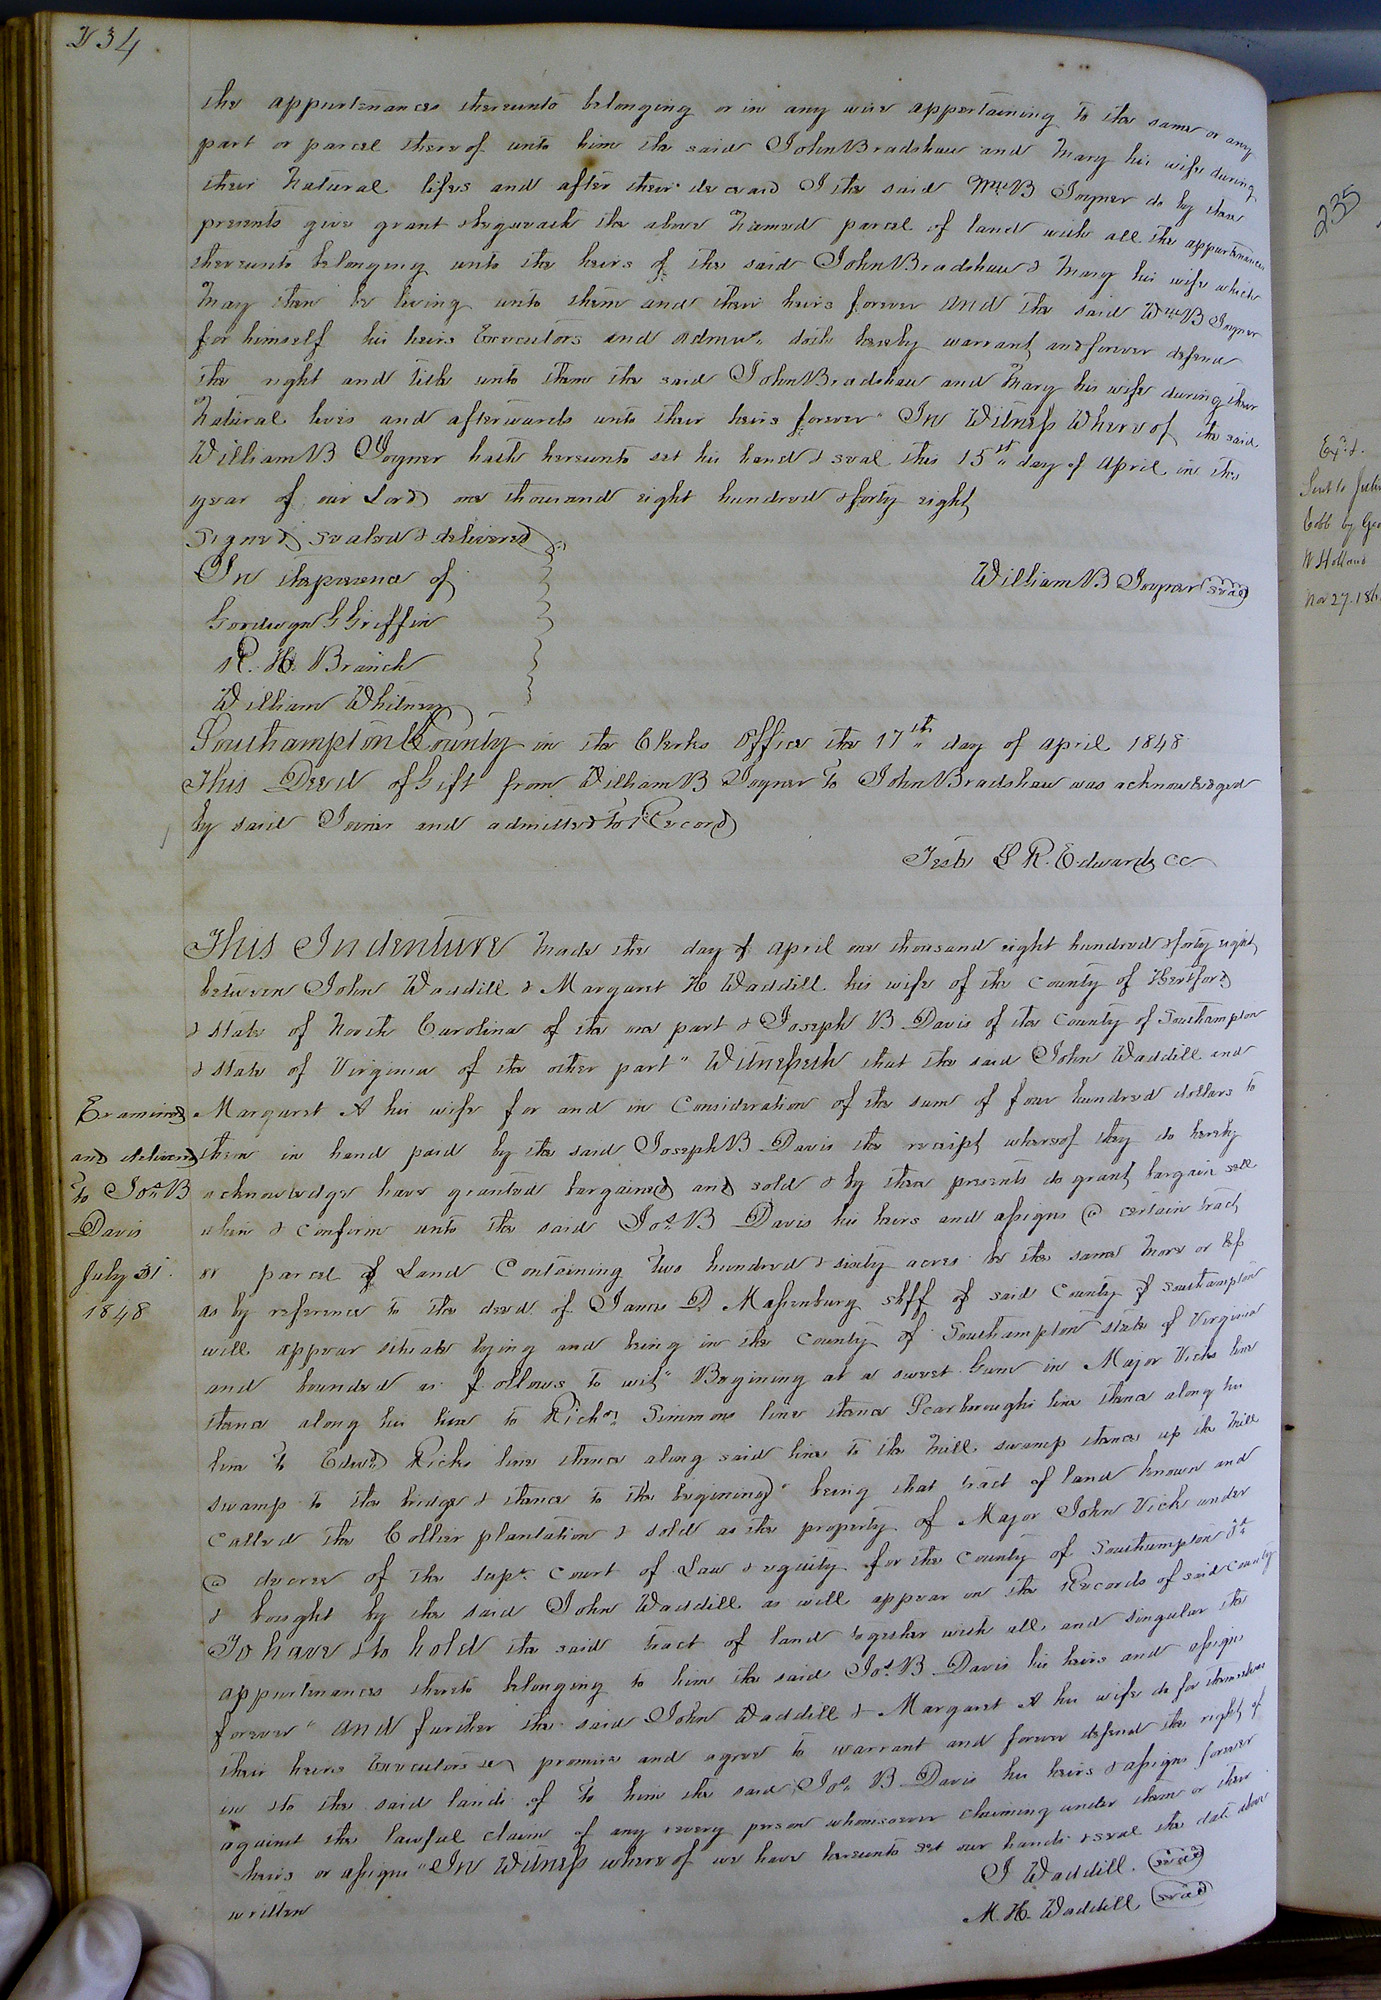 234
the appurtenances thereunto belonging or in any wise appertaining to the same or any
part or parcel thereof unto him the said John Bradshaw and Mary his wife during
their Natural lifes and after their decease I the said Wm B Joyner do by these
presents give grant & bequeath the above Named parcel of land with all the appurtenances
thereunto belonging unto the heirs of the said John Bradshaw & Mary his wife which
May then be living unto them and their heirs forever and the said Wm B Joyner
for himself his heirs Executors and admrs doth hereby warrant and forever defend
the right and title unto them the said John Bradshaw and Mary his wife during their
Natural lives and afterwards unto their heirs forever" In Witness Whereof the said
William B Joyner hath hereunto set his hand & seal this 15th day of April in the
year of our Lord one thousand eight hundred & forty eight
Signed sealed & delivered
In the presence of
William B Joyner (seal)
Gordwyn G Griffin
R. H. Branch
William Whitney
Southampton County in the Clerks Office the 17th day of april 1848
This Deed of Gift from William B Joyner to John Bradshaw was acknowledged
by said Joiner and admitted to Record
Teste L R. Edwards CC
This Indenture Made the day of April one thousand eight hundred & forty eight
between John Waddill & Margaret H Waddill his wife of the County of Hertford
& state of North Carolina of the one part & Joseph B Davis of the County of Southampton
& State of Virginia of the other part" Witnesseth that the said John Waddill and
Margaret A his wife for and in Consideration of the sum of four hundred dollars to
them in hand paid by the said Joseph B Davis the receipt whereof they do hereby
acknowledge have granted bargained and sold & by these presents do grant bargain sell
alien & confirm unto the said Jos. B Davis his heirs and assigns a certain tract
or parcel of Land Containing two hundred & sixty acres be the same More or less
as by reference to the deed of James D Massenburg shff of said County of Southampton
will appear situate lying and being in the County of Southampton State of Virginia
and bounded as follows to wit" Begining at a sweet Gum in Major Vicks line
thence along his line to Richd Simmons line thence Scarboroughs line thence along his
line to Edwd Ricks line thence along said line to the Mill swamp thence up the Mill
swamp to the bridge & thence to the begining" being that tract of land known and
Called the Collier plantation & sold as the property of Major John Vick under
a decree of the supr Court of Law & equity for the County of Southampton
& bought by the said John Waddill as will appear on the Records of said County
To have & to hold the said tract of land together with all and singular the
appurtenances thereto belonging to him the said Jos. B Davis his heirs and assigns
forever" and further the said John Waddill & Margaret A his wife do for themselves
their heirs Executors &c promise and agree to warrant and forever defend the right of
in & to the said lands of to him the said Jos. B Davis his heirs & assigns forever
against the lawful claim of any & every person whomsoever claiming under them or their
heirs or assigns" In Witness whereof we have hereunto set our hands & seal the date above
written
J Waddill. (seal)
M. H. Waddill (seal)
Examined
and delivered
to Jos. B
Davis
July 31.
1848
235
Exd.
Sent to
Cobb by Geo
W Holland
Nov 27. 186